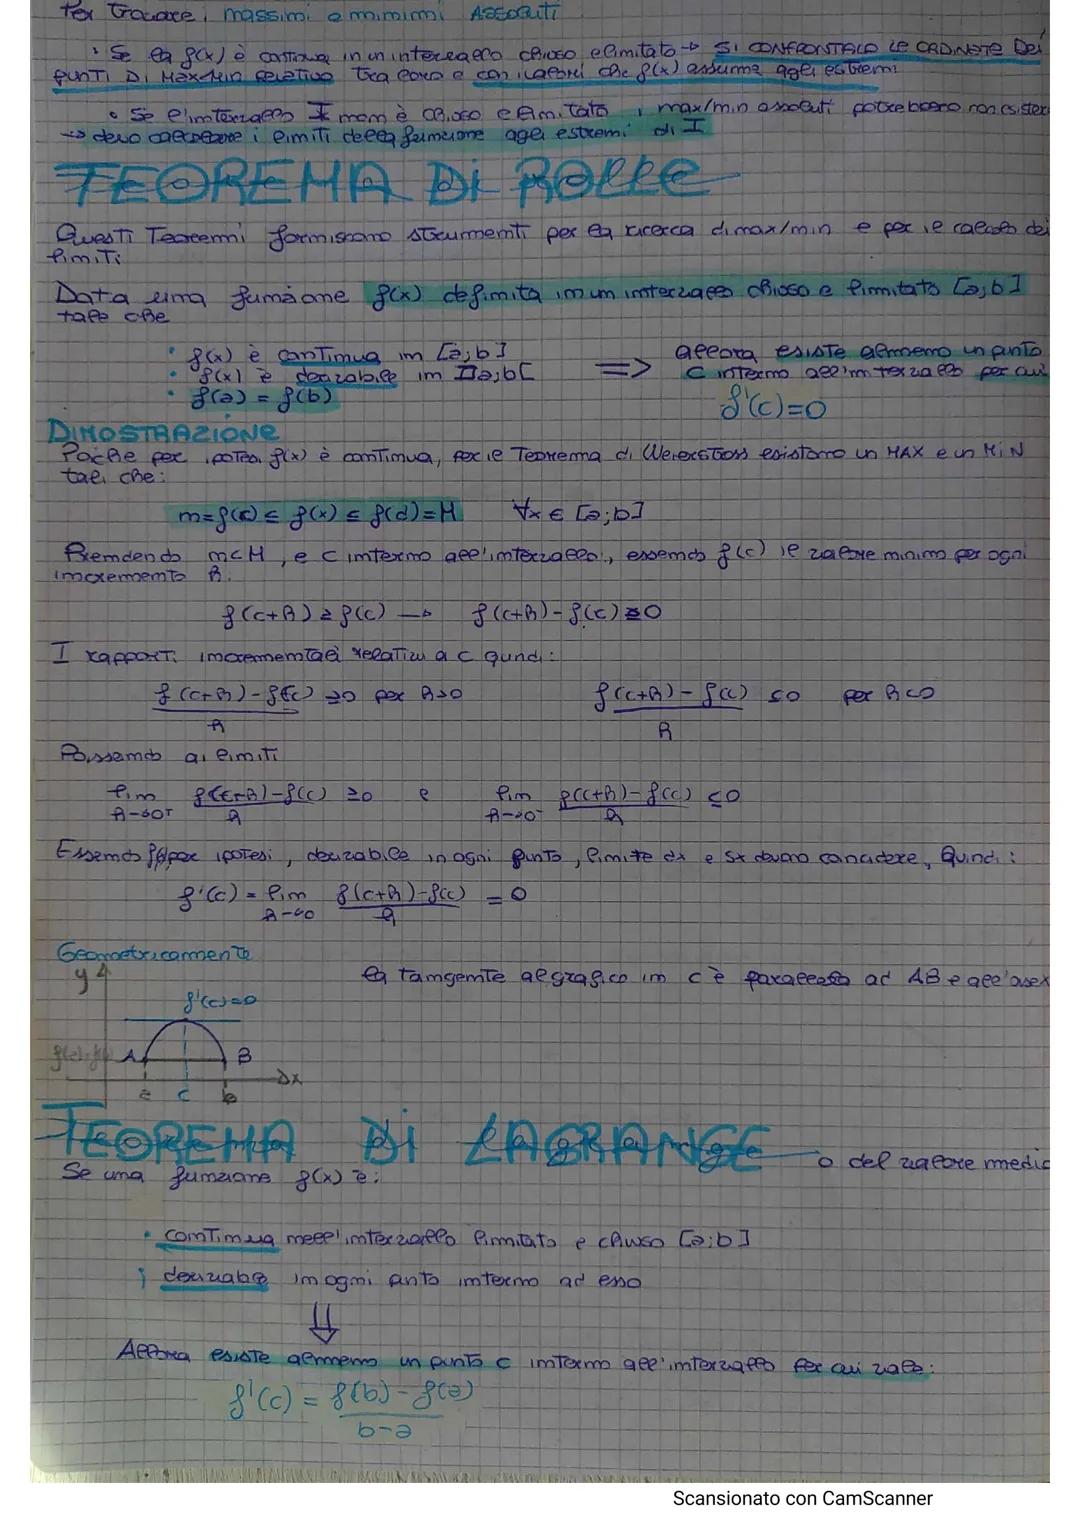 Per trovare i massimi e minimi ASSOLUTI
• Se la f(x) è continua in un intervallo chiuso e limitato → SI CONFRONTANO LE ORDINATE DEI
PUNTI DI MAX/MIN RELATIVO tra loro e con i valori che f(x) assume agli estremi
• Se l'intervallo I non è chiuso e limitato, i max/min assoluti potrebbero non esistere
→ devo calcolare i limiti della funzione agli estremi di I
TEOREMA DI ROLLE
Questi Teoremi forniscono strumenti per la ricerca di max/min e per il calcolo dei
limiti
Data una funzione f(x) definita in un intervallo chiuso e limitato [a;b]
tale che
• f(x) è continua in [a;b]
• f(x) è derivabile in ]a;b[
• f(a) = f(b)
=> allora esiste almeno un punto
c interno all'intervallo per cui
f'(c)=0
DIMOSTRAZIONE
Poiché per ipotesi f(x) è continua, per il Teorema di Weierstrass esistono un MAX e un MIN
tali che:
m=f(c) ≤ f(x) ≤ f(d)=M ∀x ∈ [a;b]
Prendendo m<M, e c interno all'intervallo, essendo f(c) il valore minimo per ogni
incremento h.
f(c+h) ≥ f(c) → f(c+h)-f(c) ≥0
I rapporti incrementali relativi a c quindi:
f(c+h)-f(c) ≥0 per h>0 f(c+h)-f(c) ≤0 per h<0
h h
Passando ai limiti
lim f(c+h)-f(c) ≥0 e lim f(c+h)-f(c) ≤0
h→0⁺ h h→0⁻ h
Essendo f per ipotesi, derivabile in ogni punto, limite dx e sx devono coincidere, Quindi:
f'(c) = lim f(c+h)-f(c) = 0
h→0 h
Geometricamente
y
la tangente al grafico in c è parallela ad AB e all'asse x
f'(c)=0
A B
x
a c b
TEOREMA DI LAGRANGE o del valore medio
Se una funzione f(x) è:
• continua nell'intervallo limitato e chiuso [a;b]
• derivabile in ogni punto interno ad esso
⇓
Allora esiste almeno un punto c interno all'intervallo per cui vale:
f'(c) = f(b)-f(a)
b-a
Scansionato con CamScanner